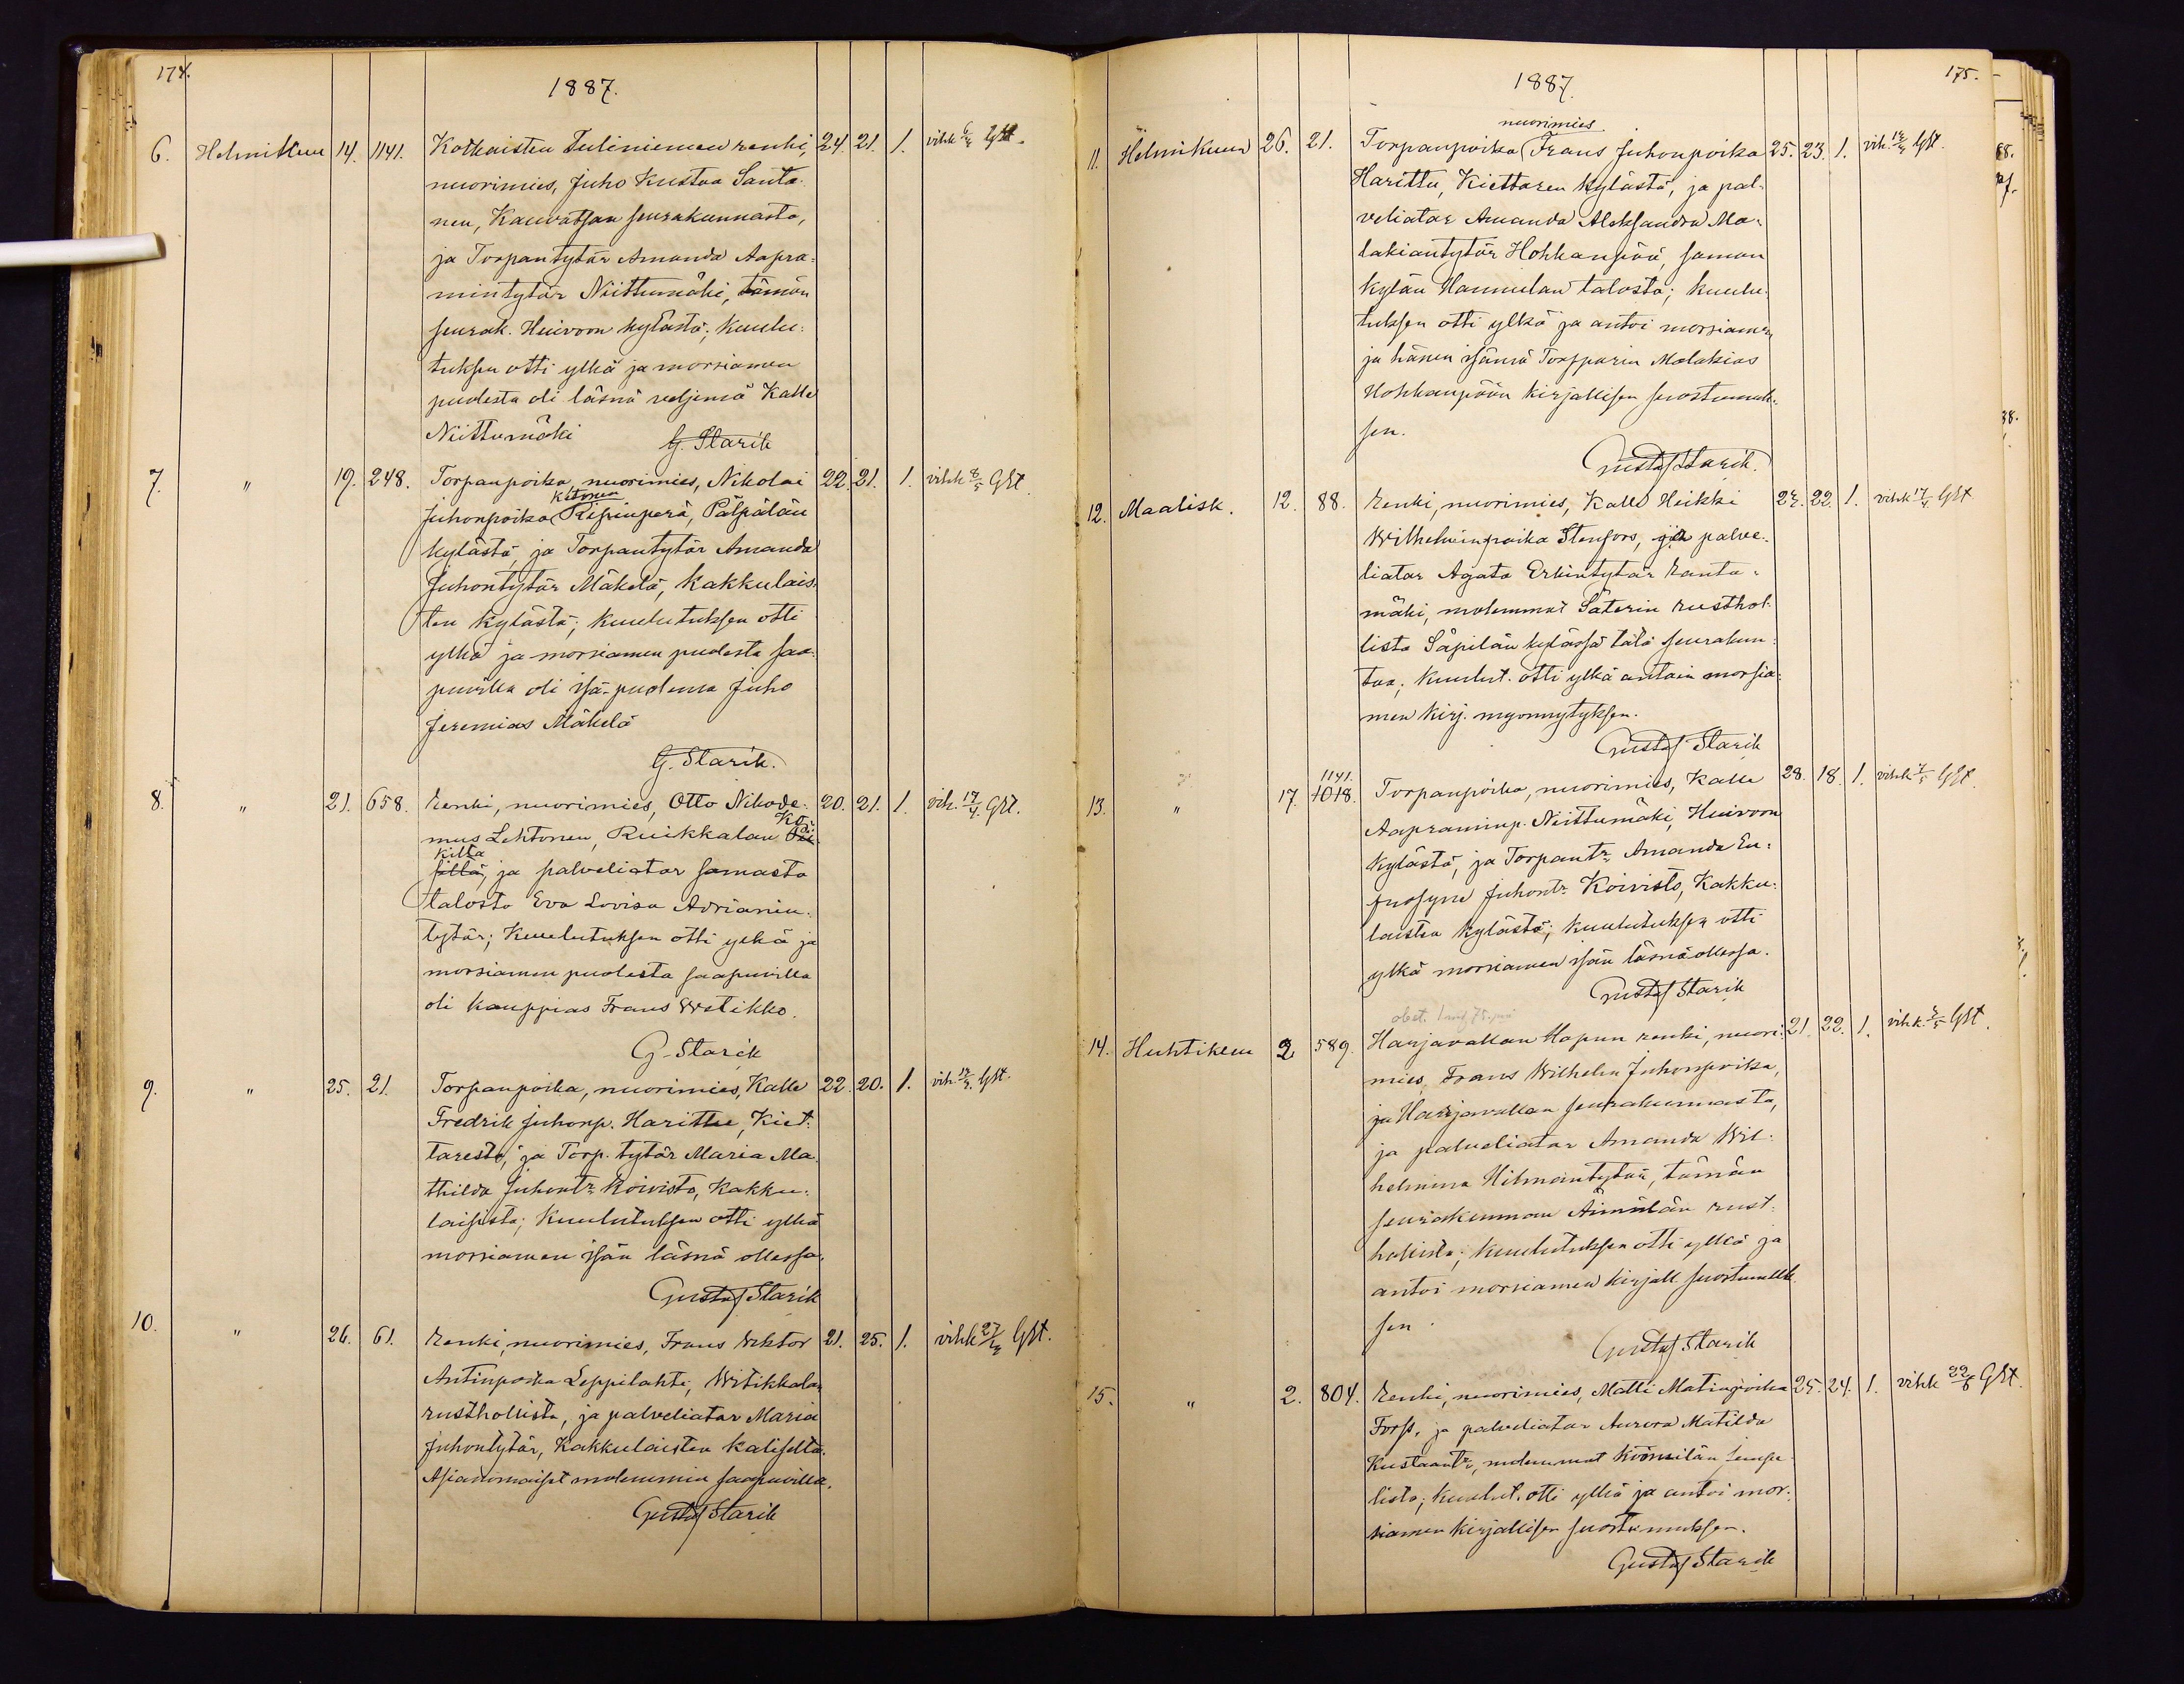 174.
1887.
6. Helmikuu 14. 1141. Kolkaisten Tuliniemen renki, 24. 21. 1. vihk 6/4 GSt.
nuorimies, Juho Kustaa Santa-
nen, Kauvatsan seurakunnasta,
ja Torpantytär Amanda Aapra-
mintytär Niittumäki, tämän
seurak. Huivoon kylästä; kuulu-
tuksen otti ylkä ja morsiamen
puolesta oli läsnä veljensä Kalle
Niittumäki
G. Starik
7. " 19. 248. Torpanpoika, nuorimies, Nikolai 22. 21. 1. vihk 8/5 GSt
Ketonen
Juhonpoika Ripinperä, Pälpälän
kylästä, ja Torpantytär Amanda
Juhontytär Mäkelä, Kakkulais-
ten kylästä; kuulutuksen otti
ylkä ja morsiamen puolesta saa-
puvilla oli isä-puolensa Juho
Jeremias Mäkelä
G. Starik.
8. " 21. 658. Renki, nuorimies, Otto Nikode- 20. 21. 1. vih. 17/4. GSt.
mus Lehtonen, Ruikkalan
killa
sillä, ja palveliatar samasta
talosta Eva Lovisa Adrianin-
tytär; Kuulutuksen otti ylkä ja
morsiamen puolesta saapuvilla
oli kauppias Frans Witikko.
G. Starik
9. " 25. 21. Torpanpoika, nuorimies, Kalle 22. 20. 1. vih. 17/4. GSt.
Fredrik Juhonp. Harittu, Kiet-
tareste, ja Torp. tytär Maria Ma-
thilda Juhontr. Koivisto, Kakku-
laisista; Kuulutuksen otti ylkä
morsiamen isän läsnä ollessa.
Gustaf Starik
10. " 26. 61. Renki, nuorimies, Frans Viktor 21. 25. 1. vihk 27/4 GSt.
Antinpoika Leppilahti, Witikkalan
rusthollista, ja palveliatar Maria
Juhontytär, Kakkulaisten Kaliselta.
Asianomaiset molemmin saapuvilla.
Gustaf Starik
175.
1887.
nuorimies
11. Helmikuun 26. 21. Torpanpoika Frans Juhonpoika 25. 23. 1. vih. 17/4 GSt.
Harittu, Kiettaren kylästä, ja pal-
veliatar Amanda Aleksandra Ma-
lakiantytär Hohkanpää, saman
kylän Hannulan talosta; kuulu-
tuksen otti ylkä ja antoi morsiamen
ja hänen isänsä Torpparin Malakias
Hohkanpään kirjallisen suostumuk-
sen.
Gustaf Starik.
12. Maalisk. 12. 88. Renki, nuorimies, Kalle Heikki 24. 22. 1. vihk 17/4. GSt
Wilhelminpoika Stenfors, ja palve-
liatar Agata Erkintytär Ranta-
mäki, molemmat Säterin rusthol-
lista Säpilän kylässä tätä seurakun-
taa; Kuulut. otti ylkä antain morsia-
men kirj. myönnytyksen.
Gustaf Starik
1141.
13. " 17. 1018. Torpanpoika, nuorimies, Kalle 28. 18. 1. vihk GSt.
Aapraminp. Niittumäki, Huivoon
kylästä, ja Torpantr. Amanda Eu-
frosyne Juhontr. Koivisto, Kakku-
laisten kylästä; Kuulutuksen otti
ylkä morsiamen isän läsnäollessa.
Gustaf Starik
14. Huhtikuu 2 589. Harjavallan Hapun renki, nuori- 21. 22. 1. vihk. GSt.
mies, Frans Wilhelm Juhonpoika,
ja Harjavallan seurakunnasta,
ja palveliatar Amanda Wil-
helmina Hilmantytär, tämän
seurakunnan Äimälän rust-
hollista; Kuulutuksen otti ylkä ja
antoi morsiamen kirjall. suostumuk-
sen.
Gustaf Starik
15. " 2. 804. Renki, nuorimies, Matti Matinpoika 25. 24. 1. vihk 22/6 GSt.
Forss, ja palveliatar Aurora Matilda
Kustaantr., molemmat Köömilän
lista; Kuulut. otti ylkä ja antoi mor-
siamen kirjallisen suostumuksen.
Gustaf Starik